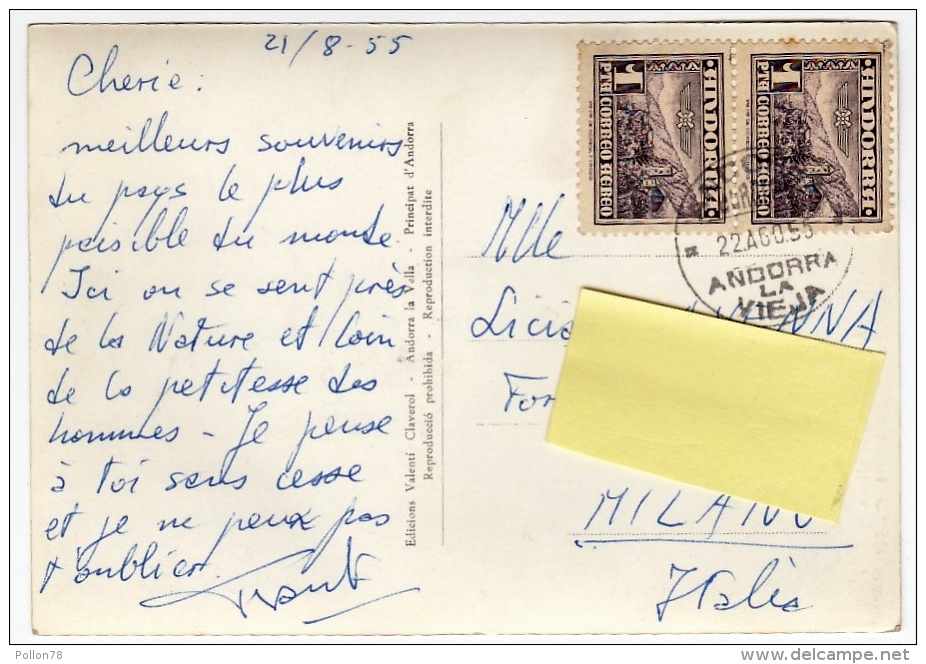 21/8-55
Cherie:
meilleurs souvenirs
du pays le plus
paisible du monde.
Ici on se sent près
de la Nature et loin
de la petitesse des
hommes - Je pense
à toi sans cesse
et je ne peux pas
t'oublier.
Edicions Valentí Claverol - Andorra la Vella - Principat d'Andorra
Reproducció prohibida - Reproduction interdite
ANDORRA
1
PTA CORREO AEREO
ANDORRA
1
PTA CORREO AEREO
22.AGO.55
ANDORRA
LA
VIEJA
Mlle
Licia
For
MILANO
Italia
Pollon78